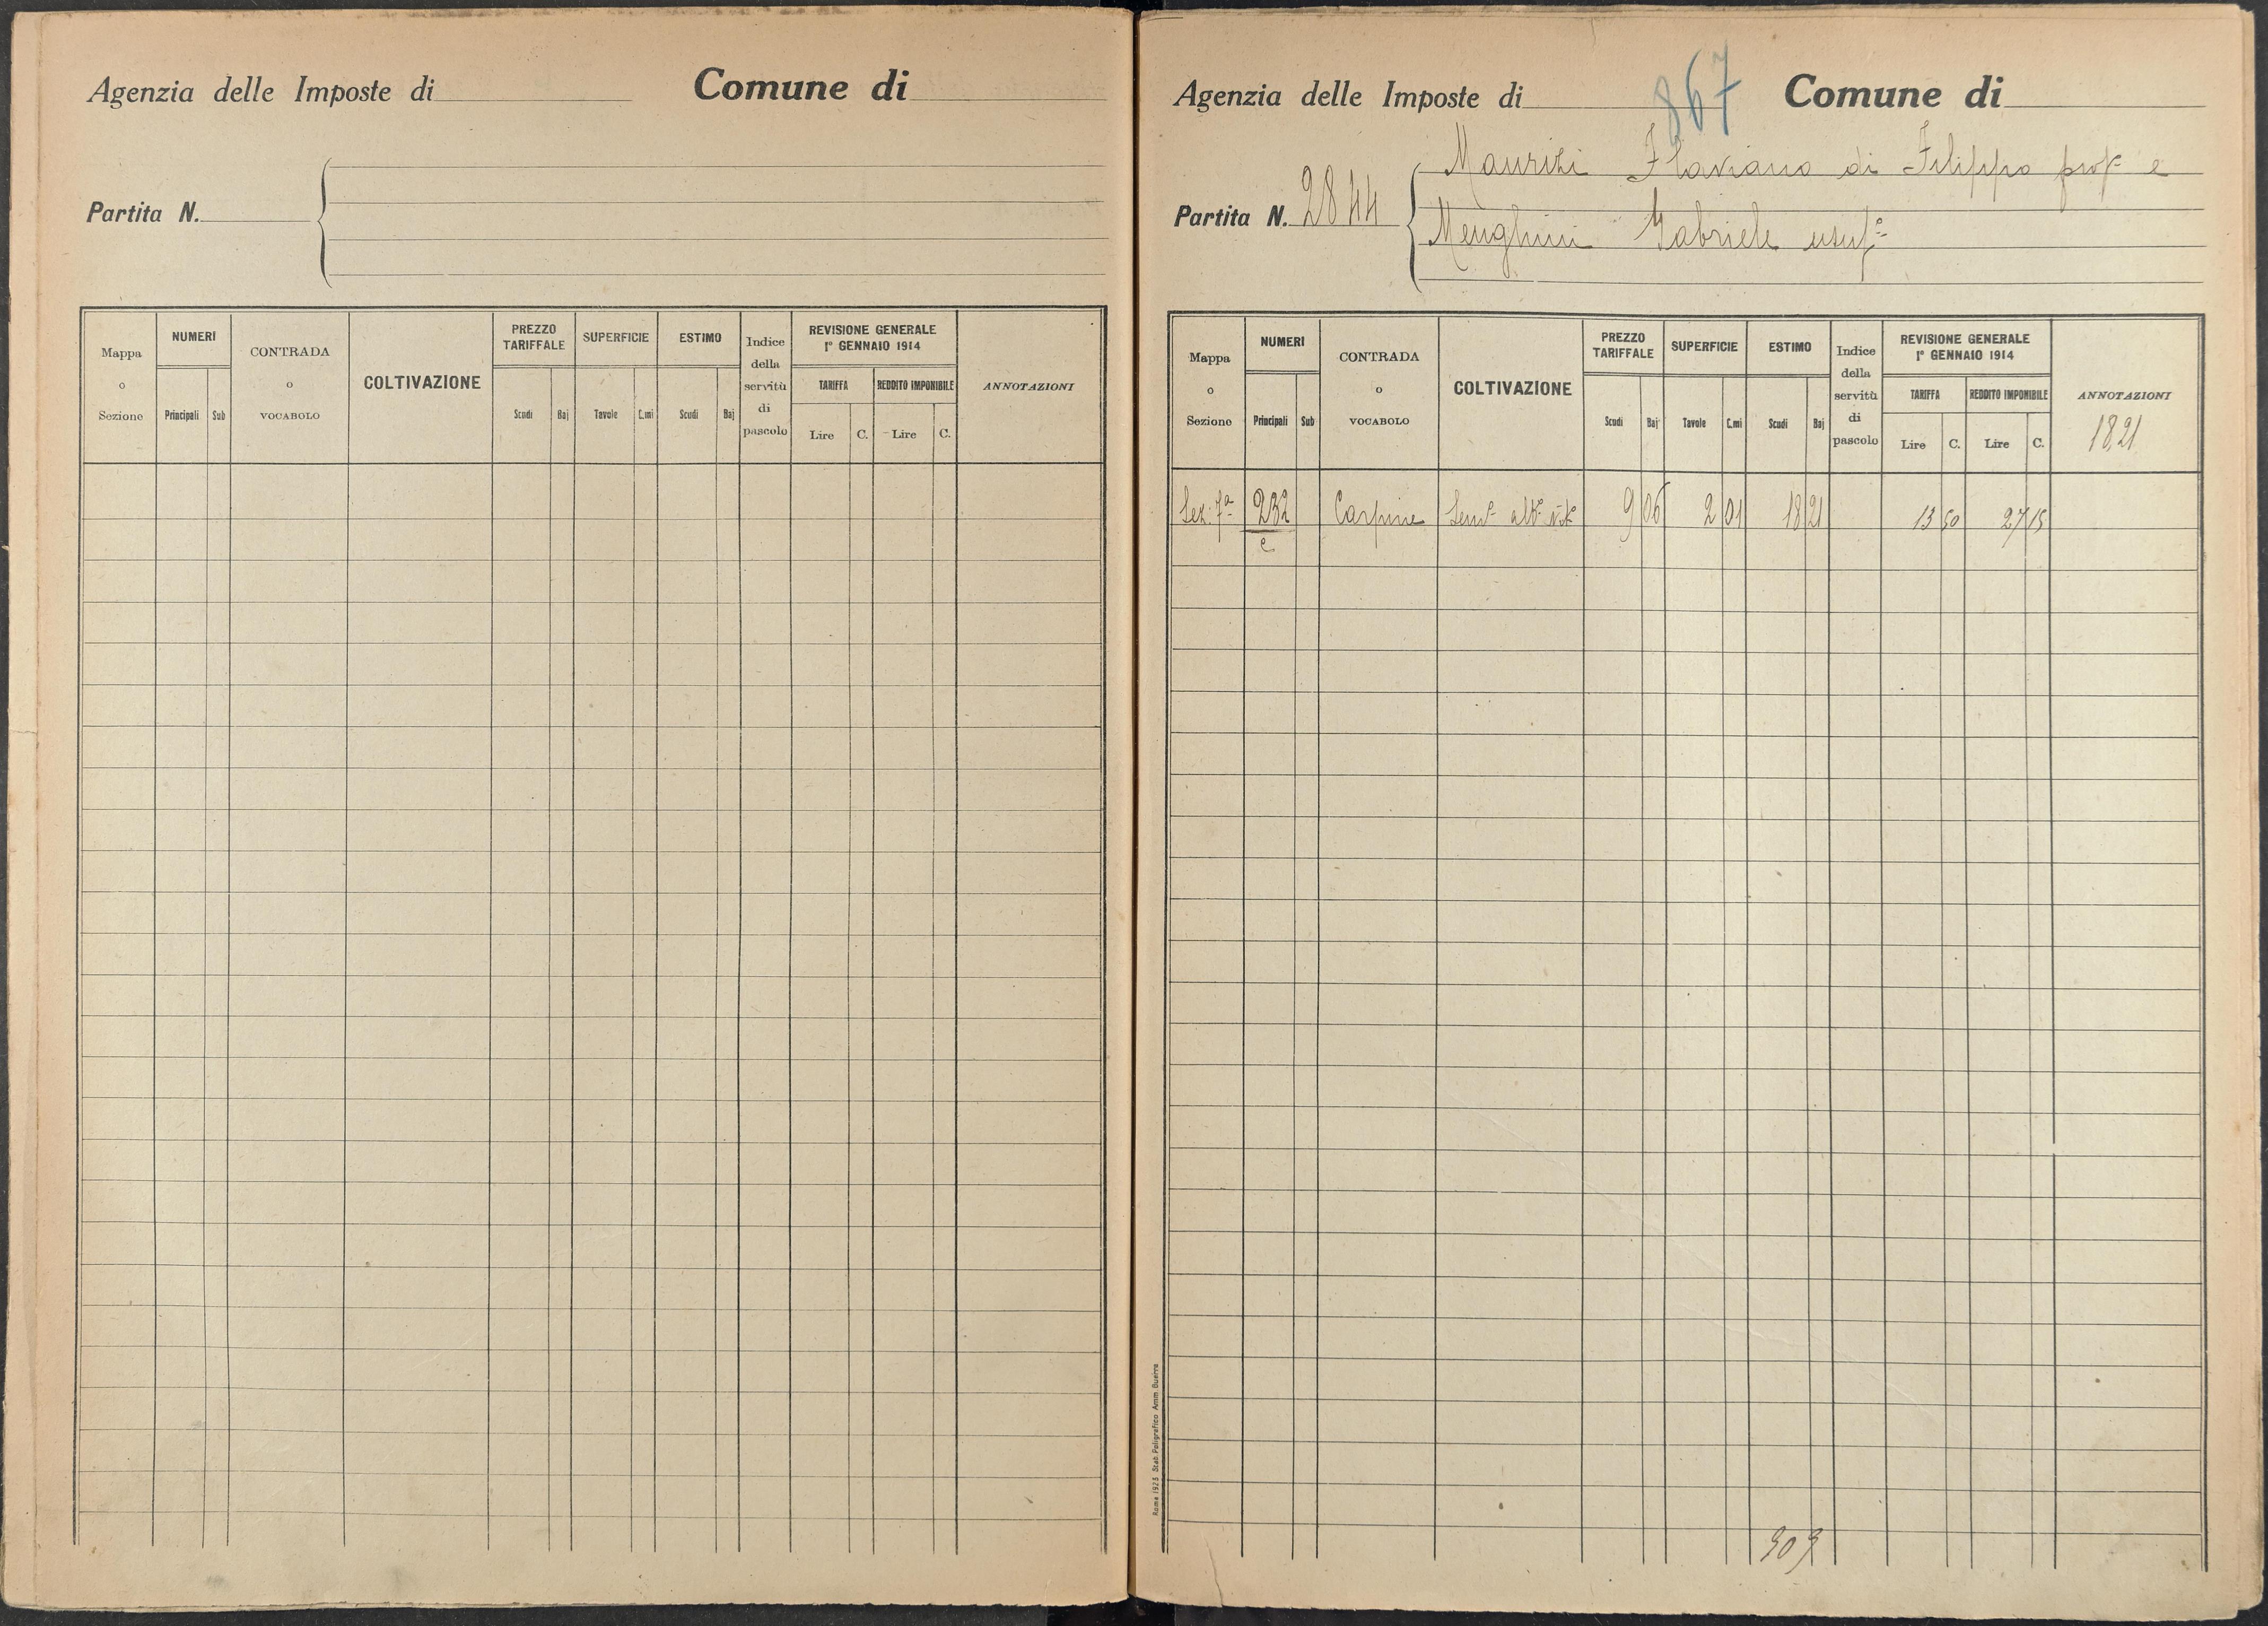 Agenzia delle Imposte di Comune di
Partita N.
Mappa o Sezione NUMERI Principali Sub CONTRADA o VOCABOLO COLTIVAZIONE PREZZO TARIFFALE Scudi Baj SUPERFICIE Tavole C.mi ESTIMO Scudi Baj Indice della servitù di pascolo REVISIONE GENERALE 1° GENNAIO 1914 TARIFFA Lire C. REDDITO IMPONIBILE Lire C. ANNOTAZIONI
867
Agenzia delle Imposte di Comune di
Maurizi Flaviano di Filippo prop.e e
Partita N. 2844
Menghini Gabriele usuf.e
Mappa o Sezione NUMERI Principali Sub CONTRADA o VOCABOLO COLTIVAZIONE PREZZO TARIFFALE Scudi Baj SUPERFICIE Tavole C.mi ESTIMO Scudi Baj Indice della servitù di pascolo REVISIONE GENERALE 1° GENNAIO 1914 TARIFFA Lire C. REDDITO IMPONIBILE Lire C. ANNOTAZIONI
1821
Sez. 7a 232 Carpine Sem.o alb.o vit.o 9 06 2 01 18 21 13 50 27 15
c
909
Roma 1925 Stab. Poligrafico Amm. Guerra